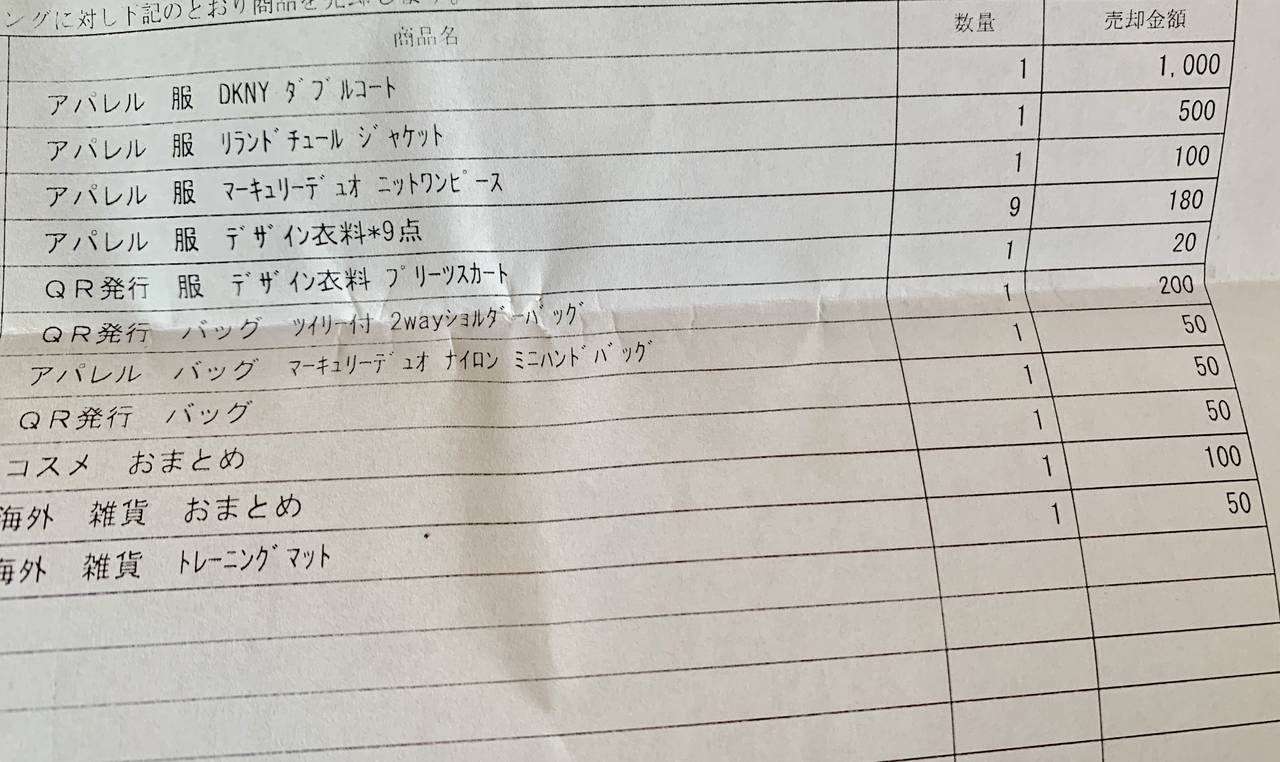 ングに対し下記のとおり商品を売却します。
商品名 数量 売却金額
アパレル 服 DKNY ダブルコート 1 1,000
アパレル 服 リランドチュール ジャケット 1 500
アパレル 服 マーキュリーデュオ ニットワンピース 1 100
アパレル 服 デザイン衣料*9点 9 180
QR発行 服 デザイン衣料 プリーツスカート 1 20
QR発行 バッグ ツイリー付 2wayショルダーバッグ 1 200
アパレル バッグ マーキュリーデュオ ナイロン ミニハンドバッグ 1 50
QR発行 バッグ 1 50
コスメ おまとめ 1 50
海外 雑貨 おまとめ 1 100
海外 雑貨 トレーニングマット 1 50